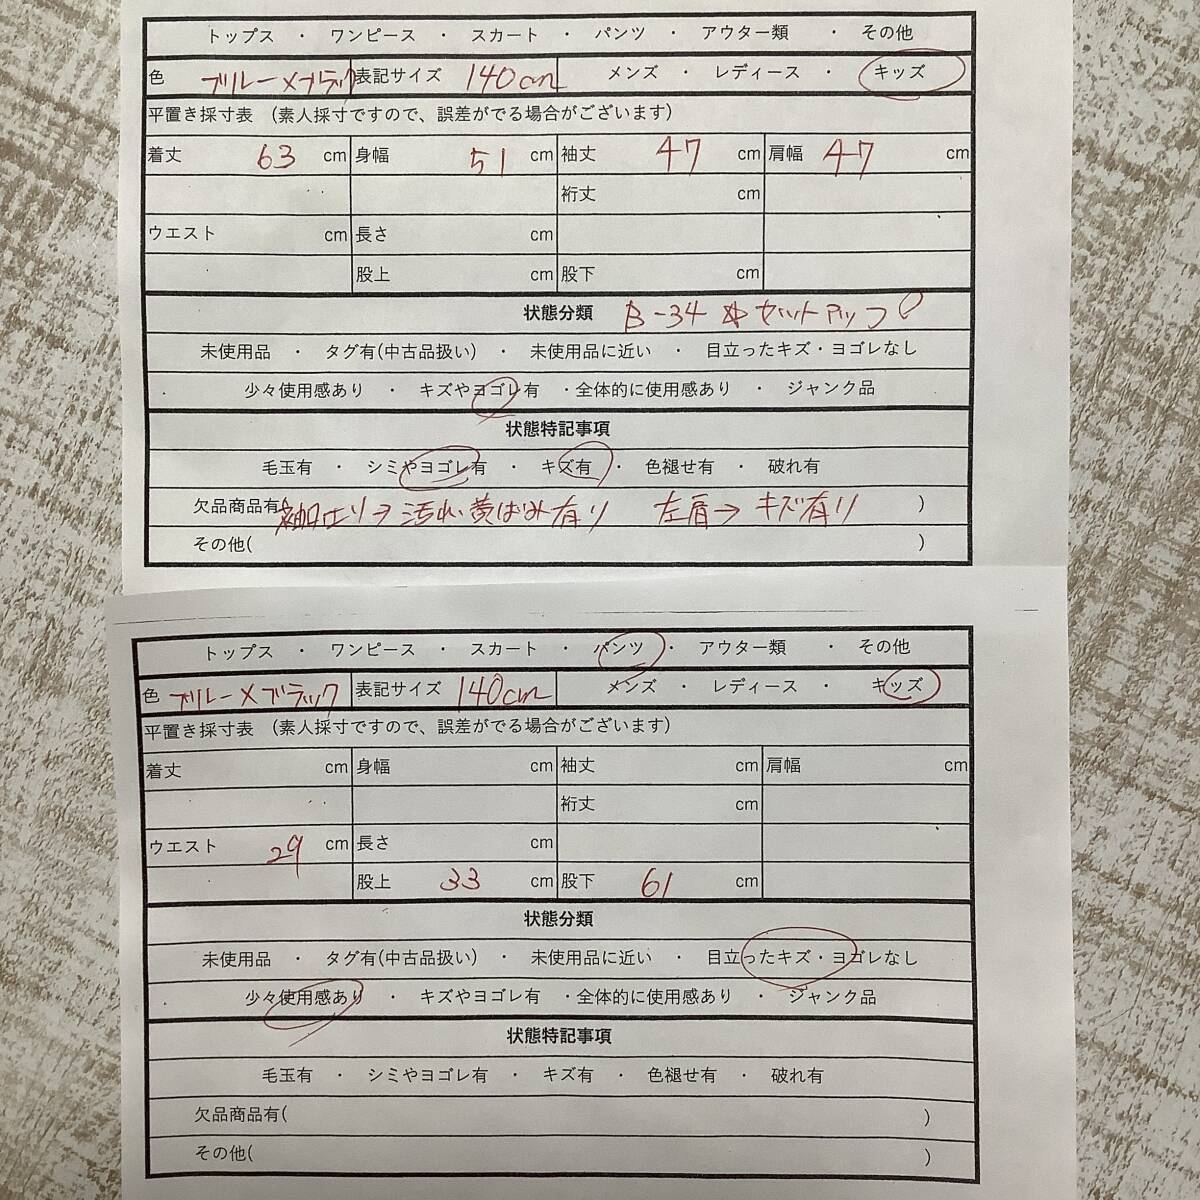 トップス ・ ワンピース ・ スカート ・ パンツ ・ アウター類 ・ その他
色 ブルー×ブラック 表記サイズ 140cm メンズ ・ レディース ・ キッズ
平置き採寸表 (素人採寸ですので、誤差がでる場合がございます)
着丈 63 cm 身幅 51 cm 袖丈 47 cm 肩幅 47 cm
裄丈 cm
ウエスト cm 長さ cm
股上 cm 股下 cm
状態分類 B-34 セットアップ
未使用品 ・ タグ有(中古品扱い) ・ 未使用品に近い ・ 目立ったキズ・ヨゴレなし
少々使用感あり ・ キズやヨゴレ有 ・全体的に使用感あり ・ ジャンク品
状態特記事項
毛玉有 ・ シミやヨゴレ有 ・ キズ有 ・ 色褪せ有 ・ 破れ有
欠品商品有 袖口辺り→汚れ、黄ばみ有り 左肩→キズ有り )
その他( )
トップス ・ ワンピース ・ スカート ・ パンツ ・ アウター類 ・ その他
色 ブルー×ブラック 表記サイズ 140cm メンズ ・ レディース ・ キッズ
平置き採寸表 (素人採寸ですので、誤差がでる場合がございます)
着丈 cm 身幅 cm 袖丈 cm 肩幅 cm
裄丈 cm
ウエスト 29 cm 長さ cm
股上 33 cm 股下 61 cm
状態分類
未使用品 ・ タグ有(中古品扱い) ・ 未使用品に近い ・ 目立ったキズ・ヨゴレなし
少々使用感あり ・ キズやヨゴレ有 ・全体的に使用感あり ・ ジャンク品
状態特記事項
毛玉有 ・ シミやヨゴレ有 ・ キズ有 ・ 色褪せ有 ・ 破れ有
欠品商品有( )
その他( )